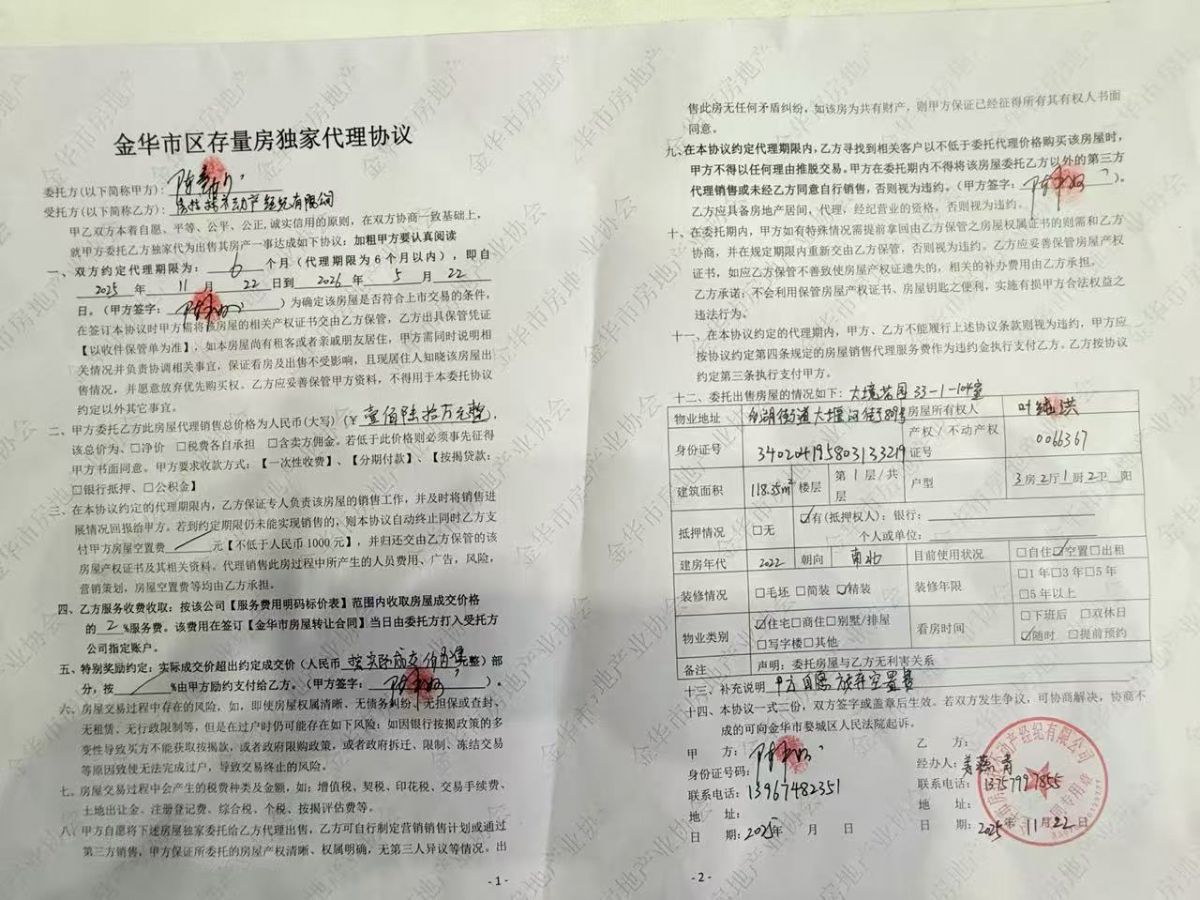 金华市区存量房独家代理协议
委托方(以下简称甲方):
受托方(以下简称乙方): 不动产经纪有限公司
甲乙双方本着自愿、平等、公平、公正,诚实信用的原则,在双方协商一致基础上,
就甲方委托乙方独家代为出售其房产一事达成如下协议:加粗甲方要认真阅读
一、双方约定代理期限为: 6 个月(代理期限为6个月以内),即自
2025 年 11 月 22 日到 2026 年 5 月 22
日。(甲方签字: )为确定该房屋是否符合上市交易的条件,
在签订本协议时甲方需将该房屋的相关产权证书交由乙方保管,乙方出具保管凭证
【以收件保管单为准】,如本房屋尚有租客或者亲戚朋友居住,甲方需同时说明相
关情况并负责协调相关事宜,保证看房及出售不受影响,且现居住人知晓该房屋出
售情况,并愿意放弃优先购买权。乙方应妥善保管甲方资料,不得用于本委托协议
约定以外其它事宜。
二、甲方委托乙方此房屋代理销售总价格为人民币(大写)(¥ 壹佰陆拾万元整,
该总价为、□净价 □税费各自承担 □含卖方佣金。若低于此价格则必须事先征得
甲方书面同意。甲方要求收款方式:【一次性收费】、【分期付款】、【按揭贷款:
□银行抵押、□公积金】
三、在本协议约定的代理期限内,乙方保证专人负责该房屋的销售工作,并及时将销售进
展情况回报给甲方。若到约定期限仍未能实现销售的、则本协议自动终止同时乙方支
付甲方房屋空置费 / 元【不低于人民币1000元】,并归还交由乙方保管的该
房屋产权证书及其相关资料。代理销售此房过程中所产生的人员费用、广告,风险,
营销策划,房屋空置费等均由乙方承担。
四、乙方服务收费收取:按该公司【服务费用明码标价表】范围内收取房屋成交价格
的 2 %服务费。该费用在签订【金华市房屋转让合同】当日由委托方打入受托方
公司指定账户。
五、特别奖励约定:实际成交价超出约定成交价(人民币 按实际成交价为准 整)部
分,按 / %由甲方励约支付给乙方。(甲方签字: )。
六、房屋交易过程中存在的风险,如,即使房屋权属清晰、无债务纠纷、无担保或查封、
无租赁、无行政限制等,但是在过户时仍可能存在如下风险:如因银行按揭政策的多
变性导致买方不能获取按揭款,或者政府限购政策,或者政府拆迁、限制、冻结交易
等原因致使无法完成过户,导致交易终止的风险。
七、房屋交易过程中会产生的税费种类及金额,如:增值税、契税、印花税、交易手续费、
土地出让金、注册登记费、综合税、个税、按揭评估费等。
八、甲方自愿将下述房屋独家委托给乙方代理出售,乙方可自行制定营销销售计划或通过
第三方销售,甲方保证所委托的房屋产权清晰、权属明确,无第三人异议等情况。出
- 1 -
售此房无任何矛盾纠纷,如该房为共有财产,则甲方保证已经征得所有其有权人书面
同意。
九、在本协议约定代理期限内,乙方寻找到相关客户以不低于委托代理价格购买该房屋时,
甲方不得以任何理由推脱交易。甲方在委托期内不得将该房屋委托乙方以外的第三方
代理销售或未经乙方同意自行销售,否则视为违约。(甲方签字: )。
乙方应具备房地产居间,代理,经纪营业的资格,否则视为违约。
十、在委托期内,甲方如有特殊情况需提前拿回由乙方保管之房屋权属证书的则需和乙方
协商,并在规定期限内重新交由乙方保管,否则视为违约。乙方应妥善保管房屋产权
证书,如应乙方保管不善致使房屋产权证遗失的,相关的补办费用由乙方承担。
乙方承诺:不会利用保管房屋产权证书、房屋钥匙之便利,实施有损甲方合法权益之
违法行为。
十一、在本协议约定的代理期内,甲方、乙方不能履行上述协议条款则视为违约,甲方应
按协议约定第四条规定的房屋销售代理服务费作为违约金执行支付乙方。乙方按协议
约定第三条执行支付甲方。
十二、委托出售房屋的情况如下: 大境花园 33-1-104室
物业地址 湖街道大堰河街88号 房屋所有权人 叶纯洪
身份证号 340204195803133219 产权/不动产权证号 0066367
建筑面积 118.35m² 楼层 第1层/共 层 户型 3房2厅1厨2卫 阳
抵押情况 □无 ☑有(抵押权人):银行:
个人或单位:
建房年代 2022 朝向 南北 目前使用状况 □自住☑空置□出租
装修情况 □毛坯 □简装 ☑精装 装修年限 □1年□3年□5年
□5年以上
物业类别 ☑住宅□商住□别墅/排屋 看房时间 □下班后 □双休日
□写字楼□其他 ☑随时 □提前预约
备注 声明:委托房屋与乙方无利害关系
十三、补充说明 甲方自愿放弃空置费
十四、本协议一式二份,双方签字或盖章后生效。若双方发生争议,可协商解决,协商不
成的可向金华市婺城区人民法院起诉。
甲 方: 乙 方:
身份证号码: 经办人: 姜燕青
联系电话: 13967482351 联系电话: 13757997855
地 址: 地 址:
日 期: 2025年 月 日 日 期: 2025年 11月 22日
- 2 -